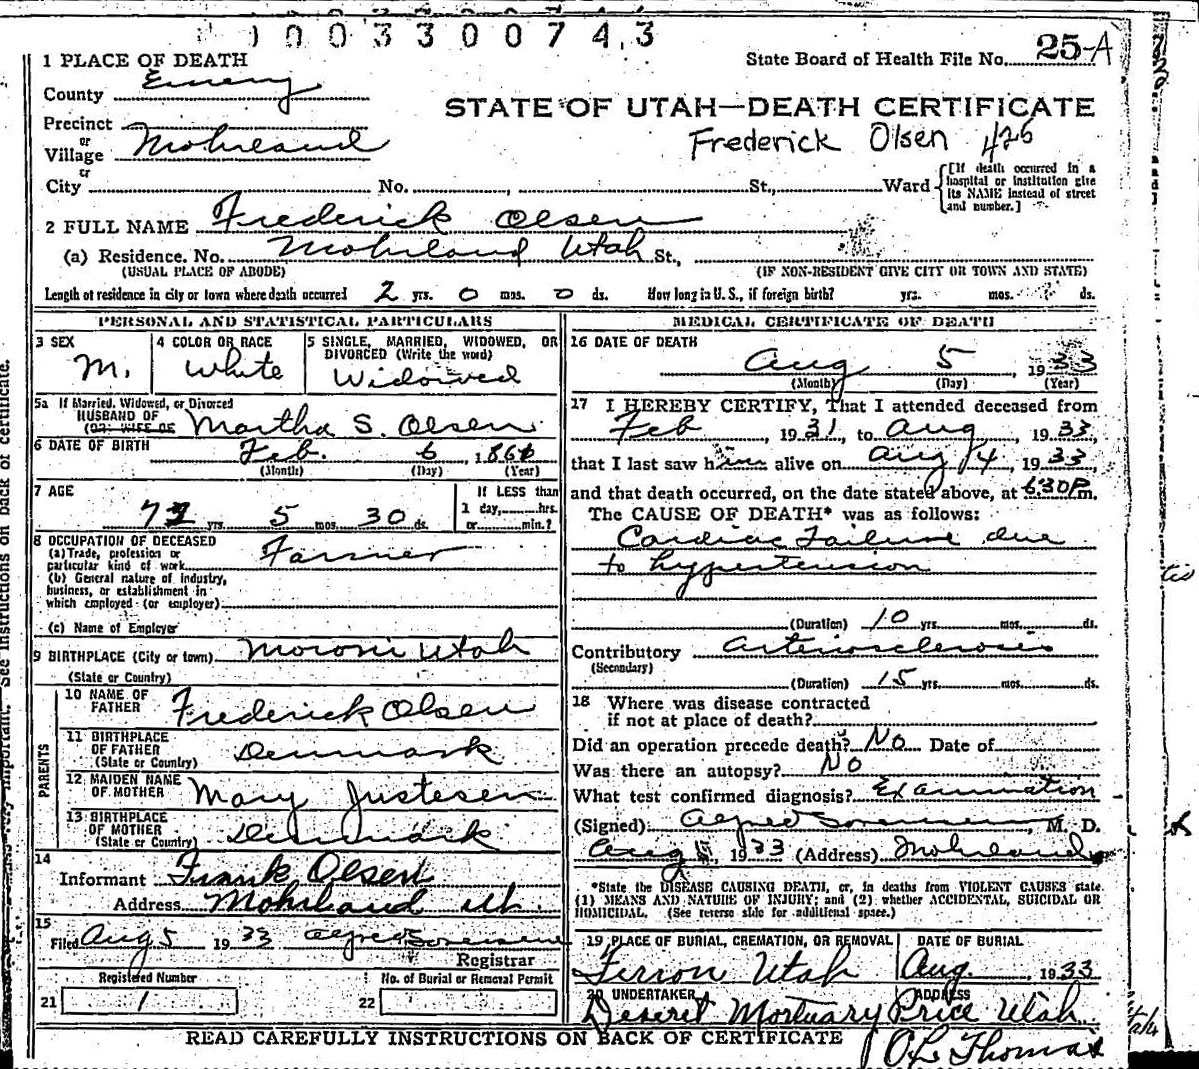 0 0 0 3 3 0 0 7 4 3
1 PLACE OF DEATH
State Board of Health File No. 25-A
County Emery
STATE OF UTAH—DEATH CERTIFICATE
Precinct
or
Village Mohrland
Frederick Olsen 426
or
City No. , St., Ward
[If death occurred in a
hospital or institution give
its NAME instead of street
and number.]
2 FULL NAME Frederick Olsen
(a) Residence. No. Mohrland Utah St.,
(USUAL PLACE OF ABODE) (IF NON-RESIDENT GIVE CITY OR TOWN AND STATE)
Length of residence in city or town where death occurred 2 yrs. 0 mos. 0 ds. How long in U. S., if foreign birth? yrs. mos. ds.
PERSONAL AND STATISTICAL PARTICULARS
3 SEX M.
4 COLOR OR RACE White
5 SINGLE, MARRIED, WIDOWED, OR
DIVORCED (Write the word)
Widowed
5a If Married, Widowed, or Divorced
HUSBAND OF
(OR) WIFE OF Martha S. Olsen
6 DATE OF BIRTH Feb. 6, 186
(Month) (Day) (Year)
7 AGE
7 yrs. 5 mos. 30 ds.
If LESS than
1 day, hrs.
or min.?
8 OCCUPATION OF DECEASED
(a) Trade, profession or
particular kind of work Farmer
(b) General nature of industry,
business, or establishment in
which employed (or employer)
(c) Name of Employer
9 BIRTHPLACE (City or town) Moroni Utah
(State or Country)
PARENTS
10 NAME OF
FATHER Frederick Olsen
11 BIRTHPLACE
OF FATHER Denmark
(State or Country)
12 MAIDEN NAME
OF MOTHER Mary Justesen
13 BIRTHPLACE
OF MOTHER Denmark
(State or Country)
14
Informant Frank Olsen
Address Mohrland Ut.
15
Filed Aug 5 1933 Alfred Sorensen
Registrar
Registered Number
21 1
No. of Burial or Removal Permit
22
MEDICAL CERTIFICATE OF DEATH
16 DATE OF DEATH
Aug 5, 1933
(Month) (Day) (Year)
17 I HEREBY CERTIFY, That I attended deceased from
Feb, 1931, to Aug, 1933,
that I last saw him alive on Aug 4, 1933,
and that death occurred, on the date stated above, at 6:30P m.
The CAUSE OF DEATH* was as follows:
Cardiac Failure due
to hypertension
(Duration) 10 yrs. mos. ds.
Contributory Arteriosclerosis
(Secondary)
(Duration) 15 yrs. mos. ds.
18 Where was disease contracted
if not at place of death?
Did an operation precede death? No Date of
Was there an autopsy? No
What test confirmed diagnosis? Examination
(Signed) Alfred Sorensen, M. D.
Aug, 1933 (Address) Mohrland
*State the DISEASE CAUSING DEATH, or, in deaths from VIOLENT CAUSES state
(1) MEANS AND NATURE OF INJURY; and (2) whether ACCIDENTAL, SUICIDAL OR
HOMICIDAL. (See reverse side for additional space.)
19 PLACE OF BURIAL, CREMATION, OR REMOVAL
Ferron Utah
DATE OF BURIAL
Aug. 1933
20 UNDERTAKER ADDRESS
Deseret Mortuary Price Utah
READ CAREFULLY INSTRUCTIONS ON BACK OF CERTIFICATE
O L Thomas
important. See instructions on back of certificate.